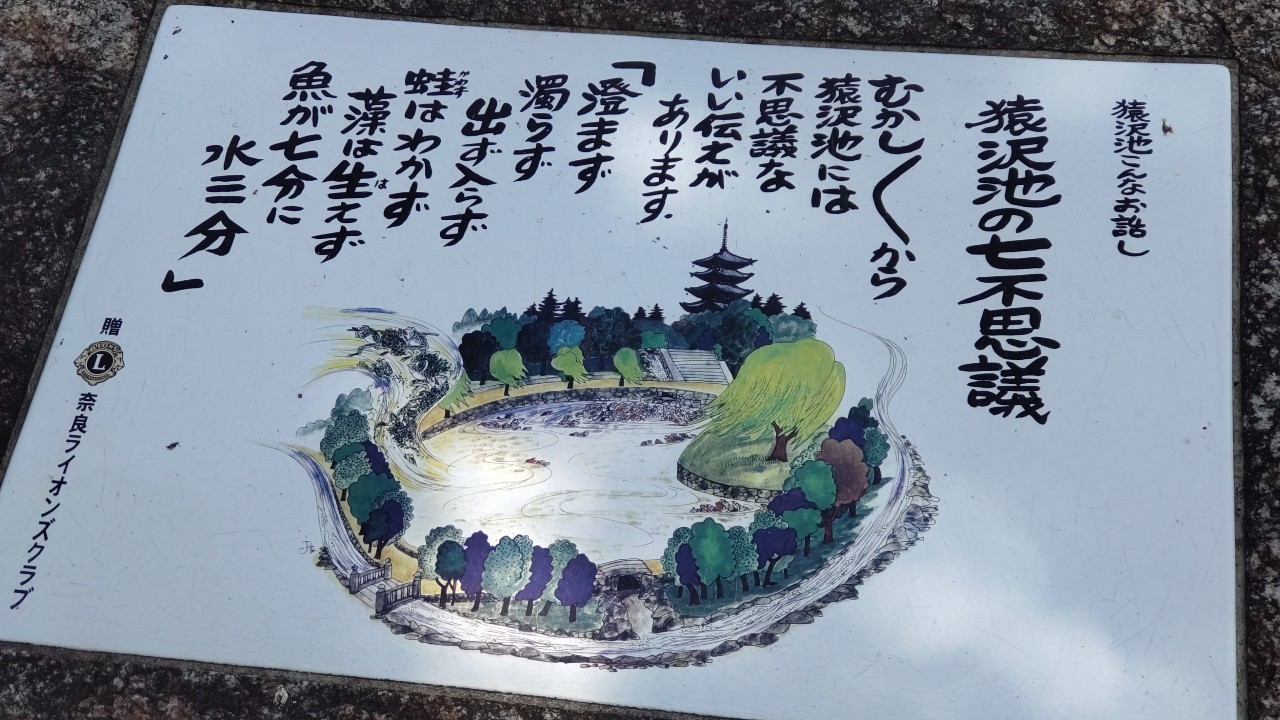 猿沢池こんなお話し
猿沢池の七不思議
むかし〳〵から
猿沢池には
不思議な
いい伝えが
あります。
「澄まず
濁らず
出ず入らず
蛙はわかず
藻は生えず
魚が七分に
水三分」
贈
L
奈良ライオンズクラブ